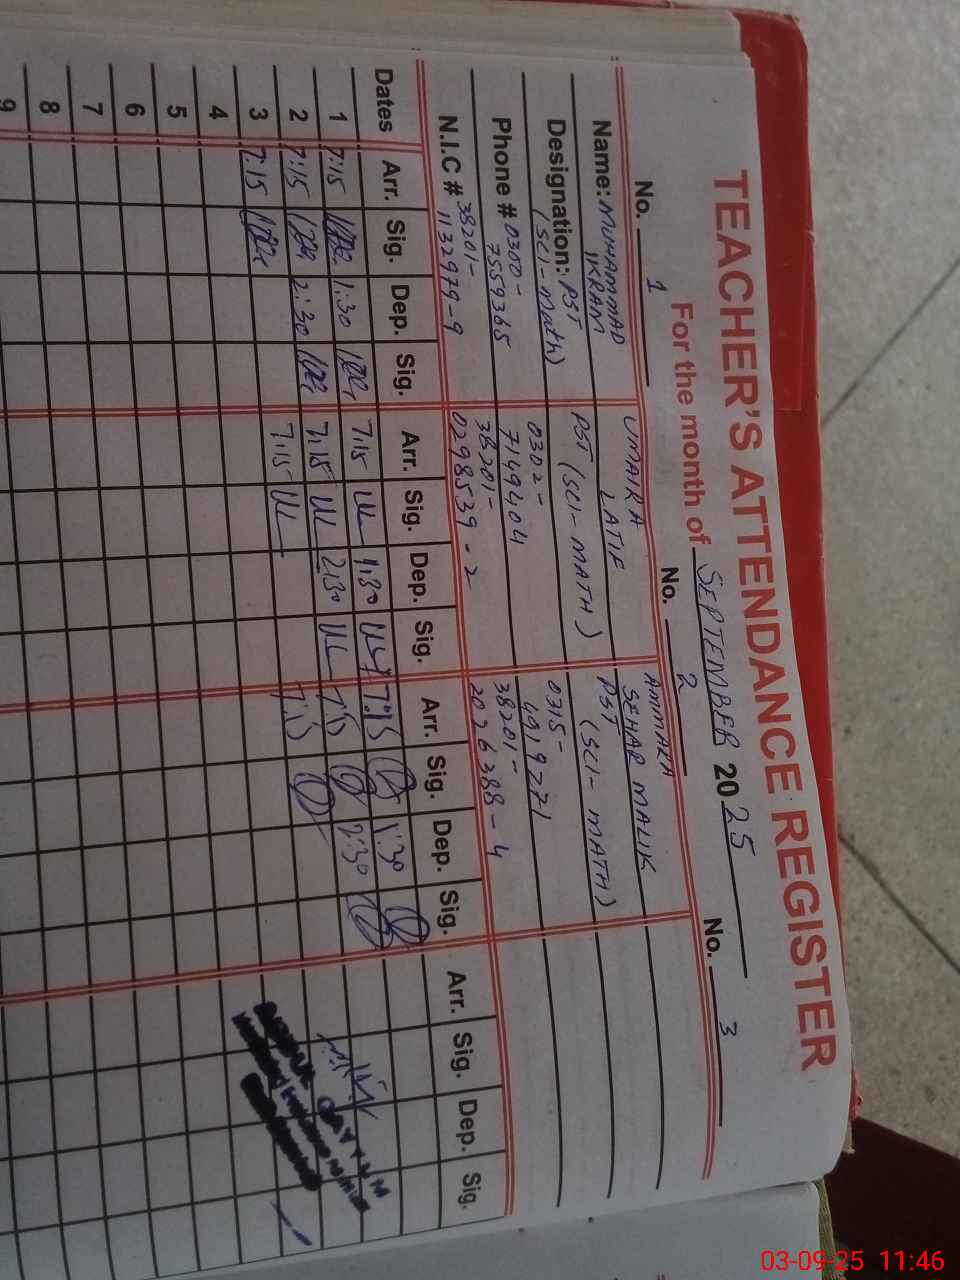 TEACHER'S ATTENDANCE REGISTER
For the month of SEPTEMBER 2025
No. 1 No. 2 No. 3
Name: MUHAMMAD IKRAM UMAIRA LATIF AMMARA SEHAR MALIK
Designation: PST (SCI-Math) PST (SCI-MATH) PST (SCI-MATH)
Phone # 0300-7559365 0302-7149404 0315-4919271
N.I.C # 38201-1132979-9 38201-0298539-2 38201-2026388-4
Dates Arr. Sig. Dep. Sig. Arr. Sig. Dep. Sig. Arr. Sig. Dep. Sig. Arr. Sig. Dep. Sig.
1 7:15 1:30 7:15 1:30 7:15 1:30
2 7:15 2:30 7:15 2:30 7:15 2:30
3 7:15 7:15 7:15
4
5
6
7
8
9
03-09-25 11:46